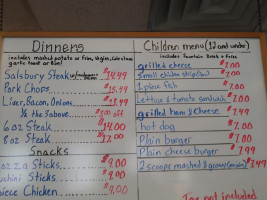 Dinners
includes mashed potato or fries, veggies, coleslaw,
garlic toast or Bun!
Salsbury Steak w/mushrooms onions $14.49
Pork Chops $15.49
Liver, Bacon, Onions $13.49
1/2 the above $2.00 off
6 oz Steak $14.00
8 oz Steak $17.00
Snacks
Sticks $9.00
Sticks $9.00
piece Chicken $9.00
Children menu (12 and under)
includes fountain Drink & Fries
grilled cheese $7.00
Small chicken strips $7.00
1 piece fish $7.00
Lettuce & tomato sandwich $7.00
grilled ham & cheese $7.49
hot dog $7.00
Plain burger $7.00
Plain cheese burger $7.49
2 scoops mashed & gravy $7.49
Tax not included